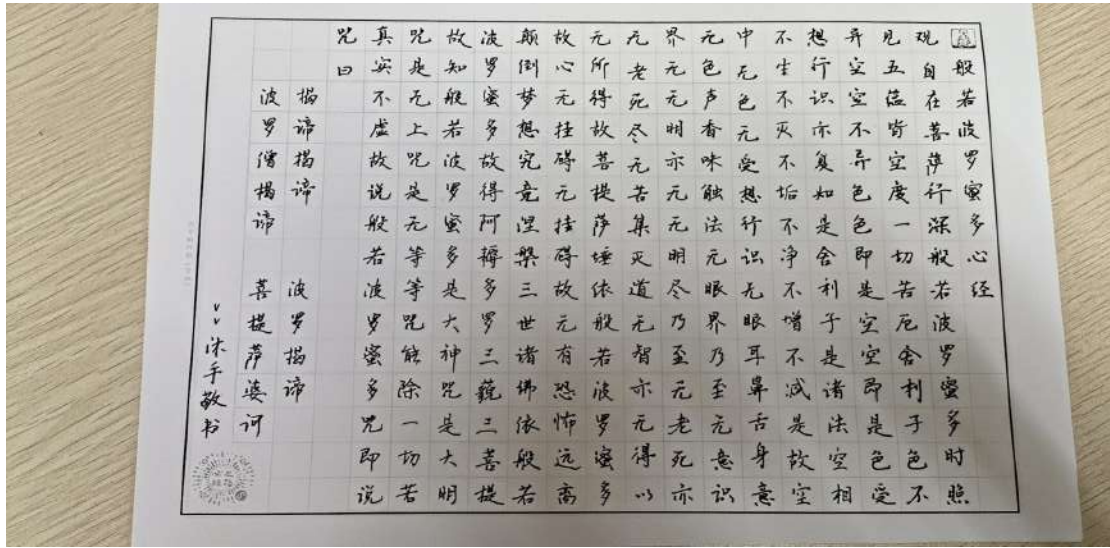 般若波罗蜜多心经
观自在菩萨行深般若波罗蜜多时照
见五蕴皆空度一切苦厄舍利子色不
异空空不异色色即是空空即是色受
想行识亦复如是舍利子是诸法空相
不生不灭不垢不净不增不减是故空
中无色无受想行识无眼耳鼻舌身意
无色声香味触法无眼界乃至无意识
界无无明亦无无明尽乃至无老死亦
无老死尽无苦集灭道无智亦无得以
无所得故菩提萨埵依般若波罗蜜多
故心无挂碍无挂碍故无有恐怖远离
颠倒梦想究竟涅槃三世诸佛依般若
波罗蜜多故得阿耨多罗三藐三菩提
故知般若波罗蜜多是大神咒是大明
咒是无上咒是无等等咒能除一切苦
真实不虚故说般若波罗蜜多咒即说
咒曰
揭谛揭谛 波罗揭谛
波罗僧揭谛 菩提萨婆诃
vv沐手敬书